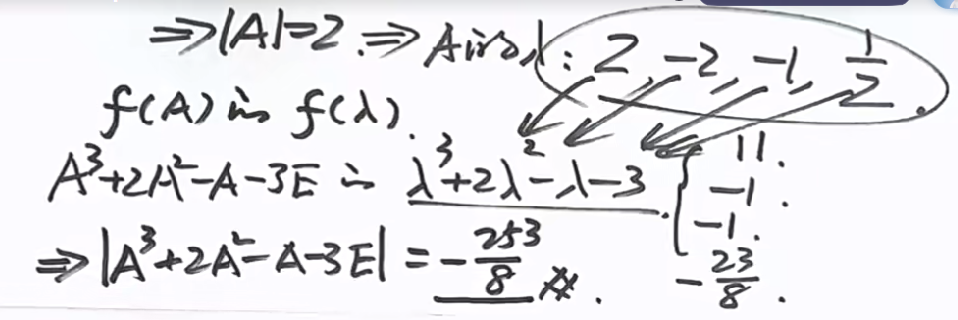 ⇒|A|=2.⇒A的λ: 2, -2, -1, 1/2.
f(A)的 f(λ).
A³+2A²-A-3E的 λ³+2λ²-λ-3. { 11. -1. -1. -23/8.
⇒|A³+2A²-A-3E|=-253/8 #.